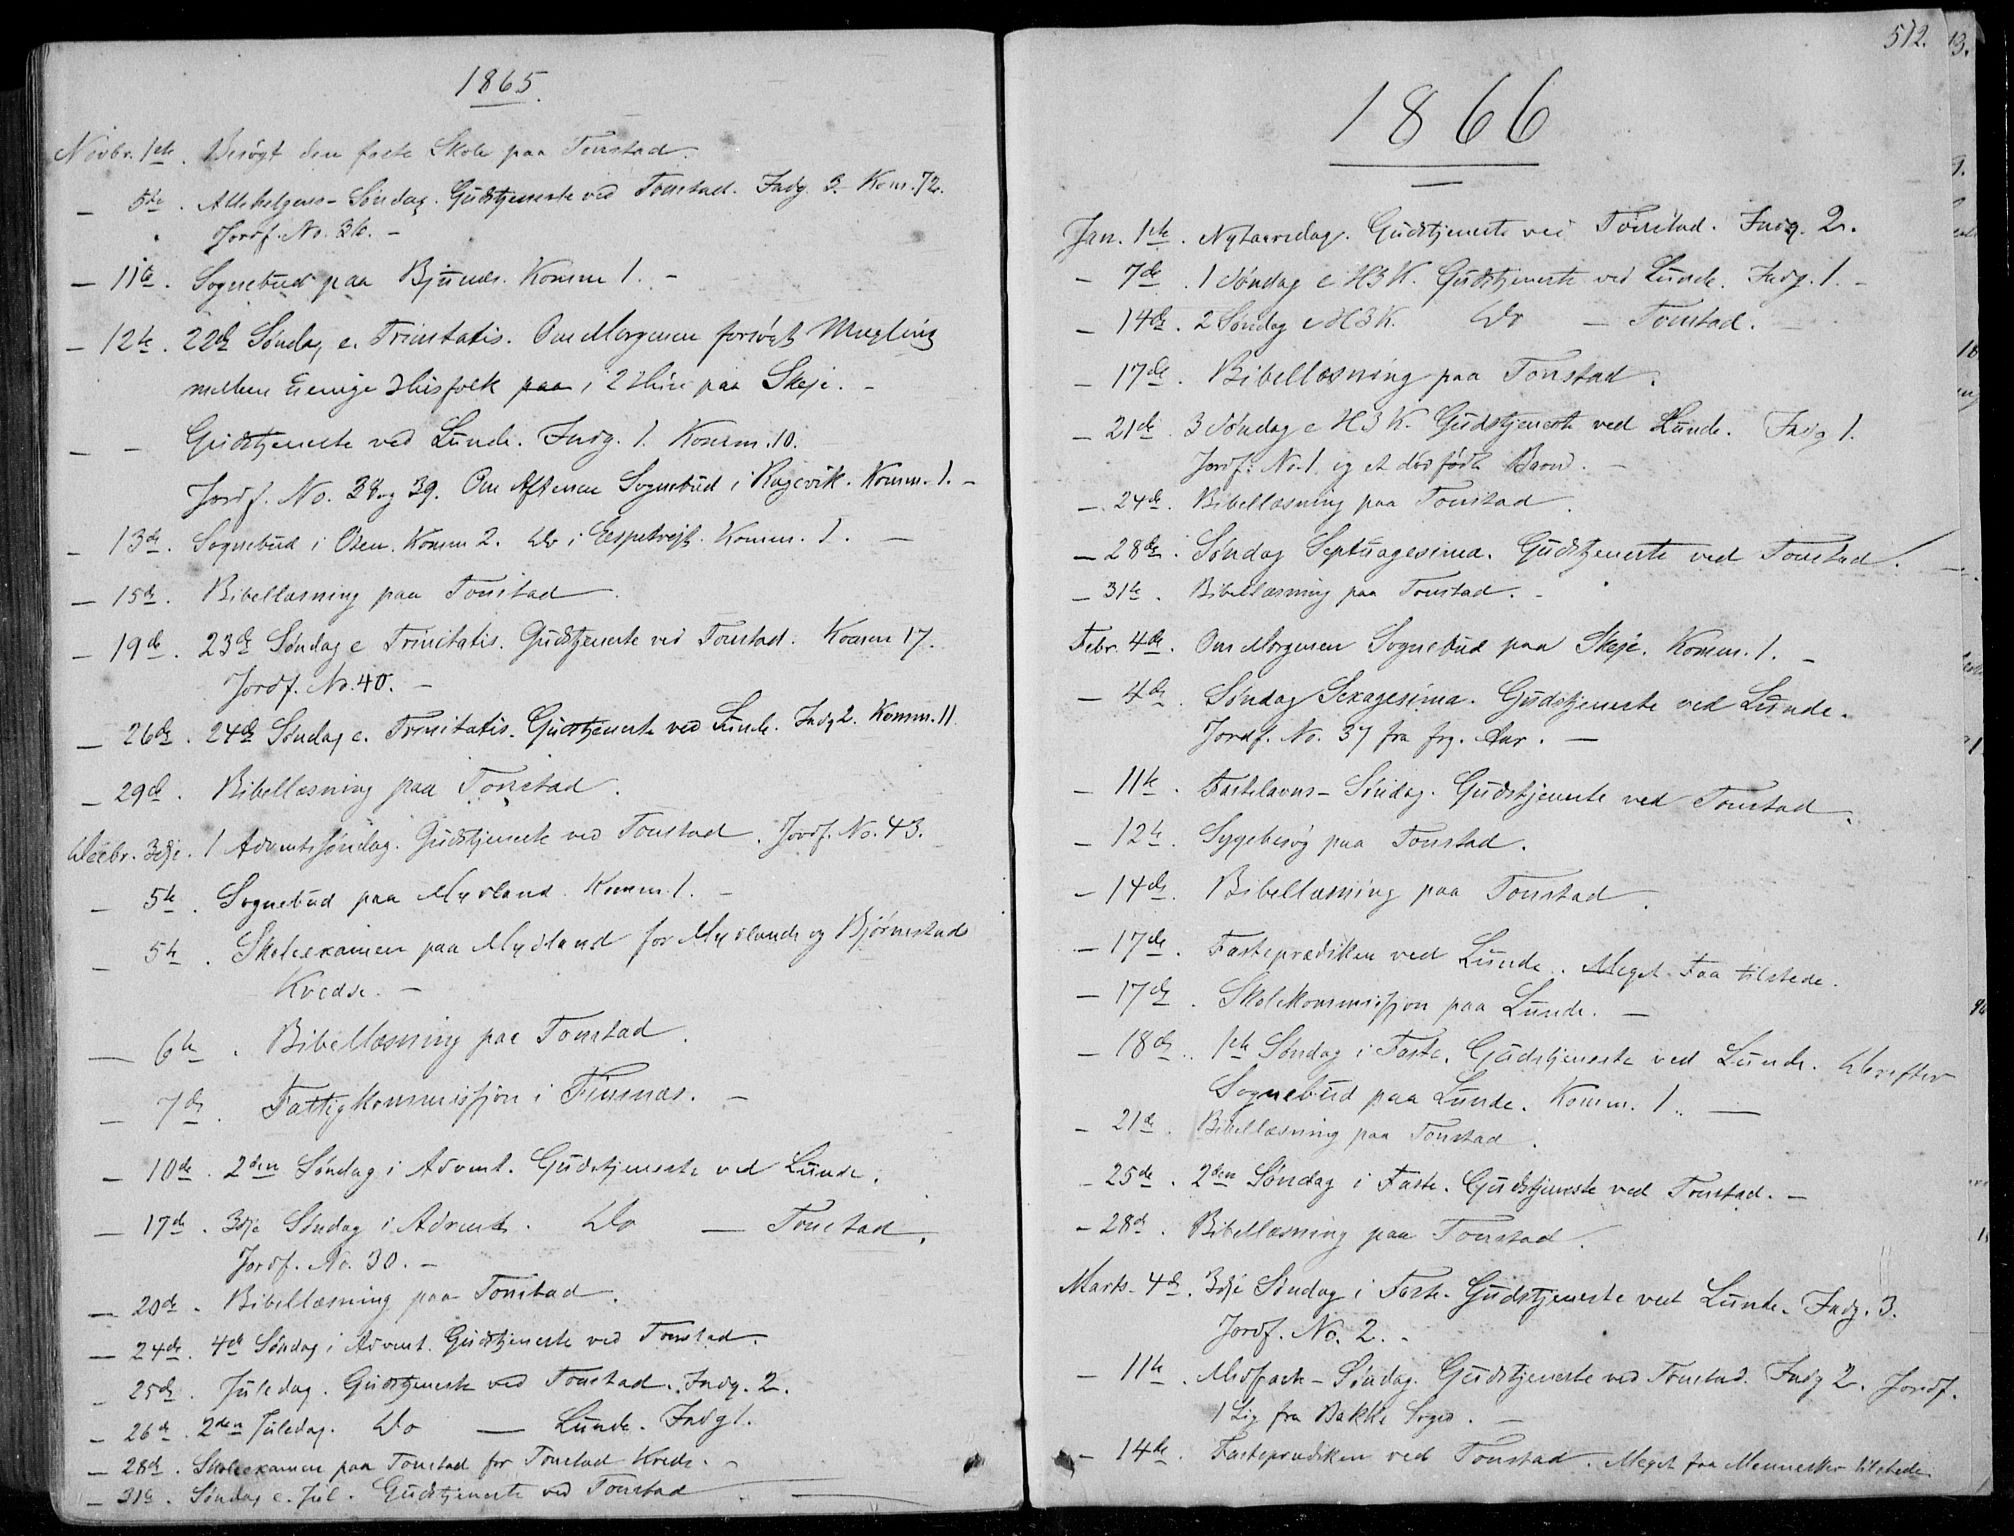 1865.
Novbr. 1ste. Besøgt den faste Skole paa Tonstad.
— 5te. Allehelgens-Søndag. Gudstjeneste ved Tonstad. Indg. 3. Kom. 72.
Jordf. No. 36. —
— 11te. Sognebud paa Bjunes. Komm 1. —
— 12te. 22de Søndag e. Trinitatis. Om Morgenen forsøgt Mægling
mellem Huusfolk paa i 2 Huse paa Skeje. —
— — Gudstjeneste ved Lunde. Indg. 1. Komm. 10.
Jordf. No. 38 og 39. Om Aftenen Sognebud i Røgevik. Komm. 1. —
— 13de. Sognebud i Osen. Komm 2. Do i Espetvejt. Komm. 1. —
— 15de. Bibellæsning paa Tonstad.
— 19de. 23de Søndag e Trinitatis. Gudstjeneste ved Tonstad. Komm 17.
Jordf. No. 40. —
— 26de. 24de Søndag e. Trinitatis. Gudstjeneste ved Lunde. Indg 2. Komm. 11.
— 29de. Bibellæsning paa Tonstad.
Decbr. 3dje. 1 Adventssøndag. Gudstjeneste ved Tonstad. Jordf. No. 43.
— 5te. Sognebud paa Mydland. Komm. 1. —
— 5te. Skoleexamen paa Mydland for Mydlands og Bjørnestads
Kredse. —
— 6te. Bibellæsning paa Tonstad.
— 7de. Fattigkommission i Finsnæs. —
— 10de. 2den Søndag i Advent. Gudstjeneste ved Lunde.
— 17de. 3dje Søndag i Advent. Do — Tonstad.
Jordf. No. 30. —
— 20de. Bibellæsning paa Tonstad.
— 24de. 4de Søndag i Advent. Gudstjeneste ved Tonstad.
— 25de. Juledag. Gudstjeneste ved Tonstad. Indg. 2.
— 26de. 2den Juledag. Do — Lunde. Indg 1.
— 28de. Skoleexamen paa Tonstad for Tonstad Kreds. —
— 31te. Søndag e. Jul. Gudstjeneste ved Tonstad.
512.
1866
Jan. 1ste. Nytaarsdag. Gudstjeneste ved Tonstad. Indg. 2.
— 7de. 1 Søndag e H3K. Gudstjeneste ved Lunde. Indg. 1. —
— 14de. 2 Søndag e H3K. Do — Tonstad.
— 17de. Bibellæsning paa Tonstad.
— 21de. 3 Søndag e H3K. Gudstjeneste ved Lunde. Indg 1.
Jordf. No. 1. og et dødfødt Barn. —
— 24de. Bibellæsning paa Tonstad.
— 28de. Søndag Septuagesima. Gudstjeneste ved Tonstad.
— 31te. Bibellæsning paa Tonstad. —
Febr. 4de. Om Morgenen Sognebud paa Skeje. Komm. 1. —
— 4de. Søndag Sexagesima. Gudstjeneste ved Lunde.
Jordf. No. 37 fra frg. Aar. —
— 11te. Fastelavns-Søndag. Gudstjeneste ved Tonstad.
— 12te. Sygebesøg paa Tonstad.
— 14de. Bibellæsning paa Tonstad.
— 17de. Fasteprædiken ved Lunde. Meget Faa tilstede.
— 17de. Skolekommission paa Lunde. —
— 18de. 1ste Søndag i Faste. Gudstjeneste ved Lunde. Derefter
Sognebud paa Lunde. Komm. 1. —
— 21de. Bibellæsning paa Tonstad.
— 25de. 2den Søndag i Faste. Gudstjeneste ved Tonstad. —
— 28de. Bibellæsning paa Tonstad.
Marts. 4de. 3dje Søndag i Faste. Gudstjeneste ved Lunde. Indg. 3.
Jordf. No. 2. —
— 11te. Midfaste-Søndag. Gudstjeneste ved Tonstad. Indg 2. Jordf.
1 Lig fra Bakke Sogn. —
— 14de. Fasteprædiken ved Tonstad. Meget faa Mennesker tilstede.